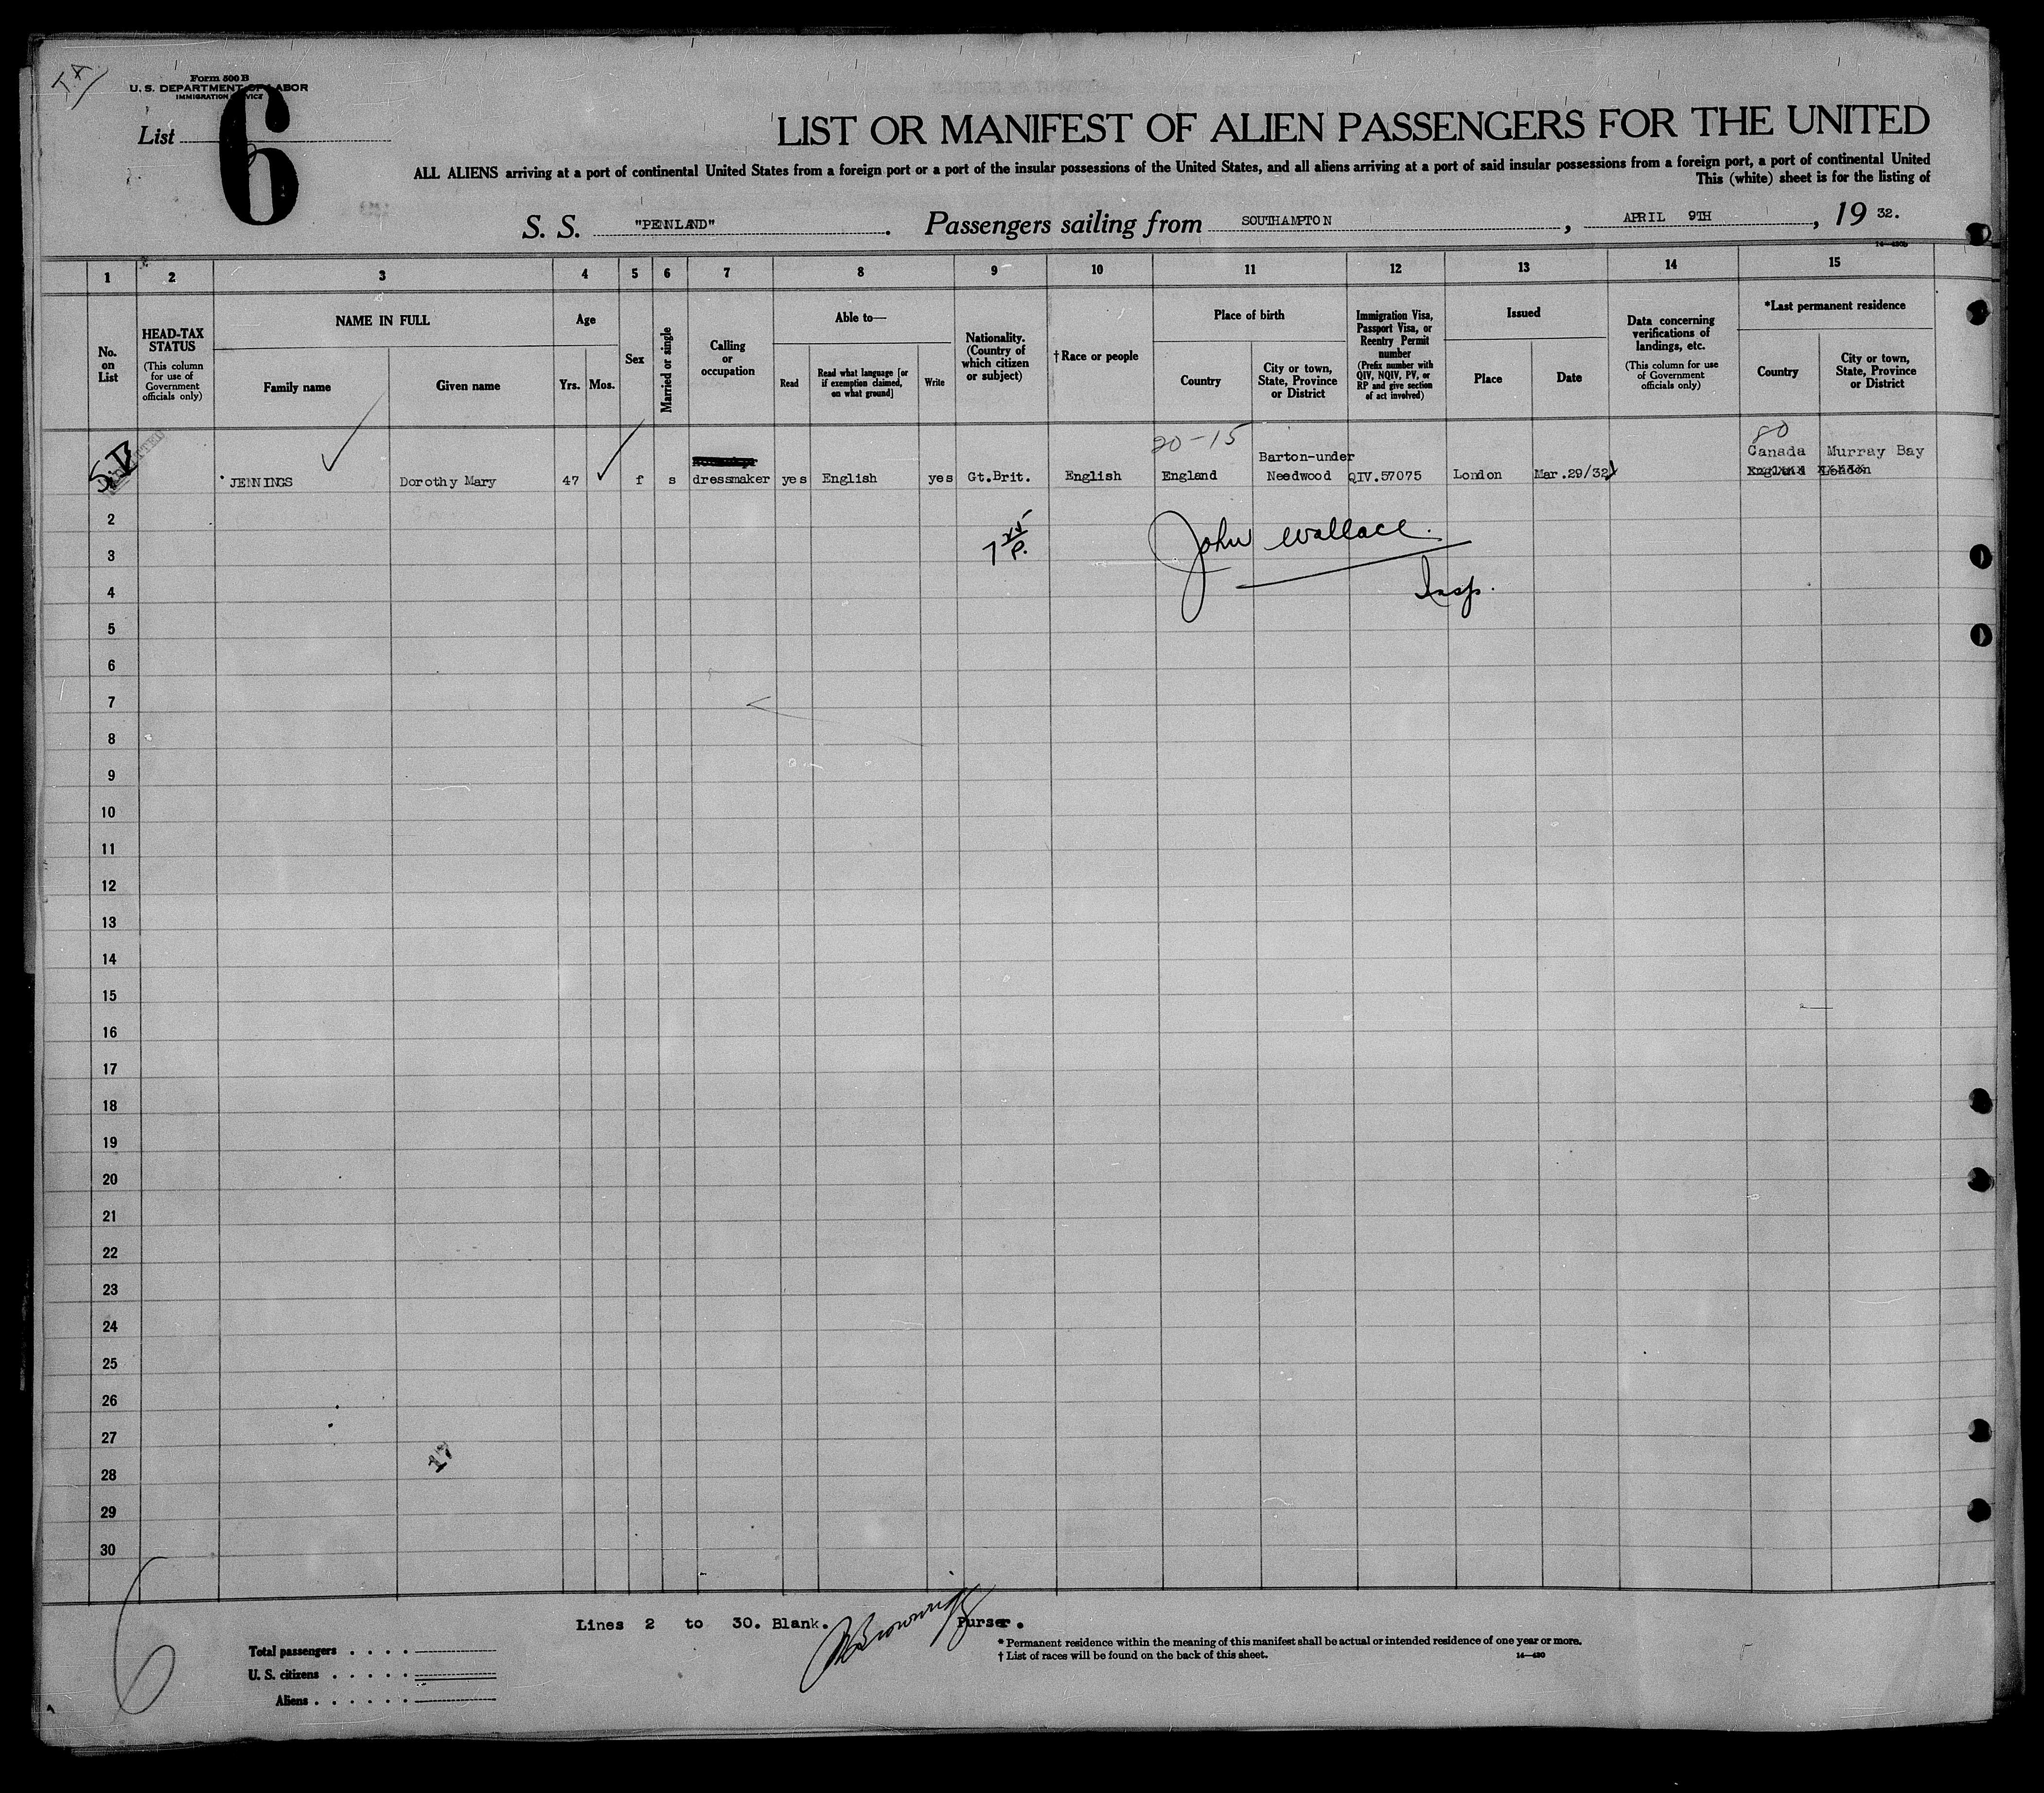 Form 500 B
U. S. DEPARTMENT OF LABOR
IMMIGRATION SERVICE
List 6
LIST OR MANIFEST OF ALIEN PASSENGERS FOR THE UNITED
ALL ALIENS arriving at a port of continental United States from a foreign port or a port of the insular possessions of the United States, and all aliens arriving at a port of said insular possessions from a foreign port, a port of continental United
This (white) sheet is for the listing of
S. S. "PENNLAND". Passengers sailing from SOUTHAMPTON, APRIL 9TH, 19 32.
1 2 3 4 5 6 7 8 9 10 11 12 13 14 15
No. on List
HEAD-TAX STATUS
(This column for use of Government officials only)
NAME IN FULL
Family name
Given name
Age
Yrs.
Mos.
Sex
Married or single
Calling or occupation
Able to—
Read
Read what language [or if exemption claimed, on what ground]
Write
Nationality. (Country of which citizen or subject)
†Race or people
Place of birth
Country
City or town, State, Province or District
Immigration Visa, Passport Visa, or Reentry Permit number
(Prefix number with QIV, NQIV, PV, or RP and give section of act involved)
Issued
Place
Date
Data concerning verifications of landings, etc.
(This column for use of Government officials only)
*Last permanent residence
Country
City or town, State, Province or District
20-15
80
Barton-under
Canada Murray Bay
JENNINGS Dorothy Mary 47 f s dressmaker yes English yes Gt.Brit. English England Needwood QIV.57075 London Mar.29/32 England London
2
John Wallace.
3
4
Insp.
5
6
7
8
9
10
11
12
13
14
15
16
17
18
19
20
21
22
23
24
25
26
27
17
28
29
30
6
Lines 2 to 30. Blank. Purser.
Total passengers
U. S. citizens
Aliens
* Permanent residence within the meaning of this manifest shall be actual or intended residence of one year or more.
† List of races will be found on the back of this sheet.
14—430